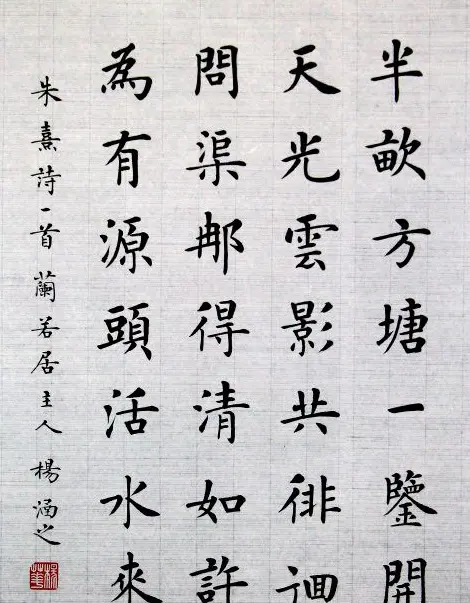 半畝方塘一鑒開
天光雲影共徘徊
問渠那得清如許
為有源頭活水來
朱熹詩一首 蘭若居主人 楊涵之